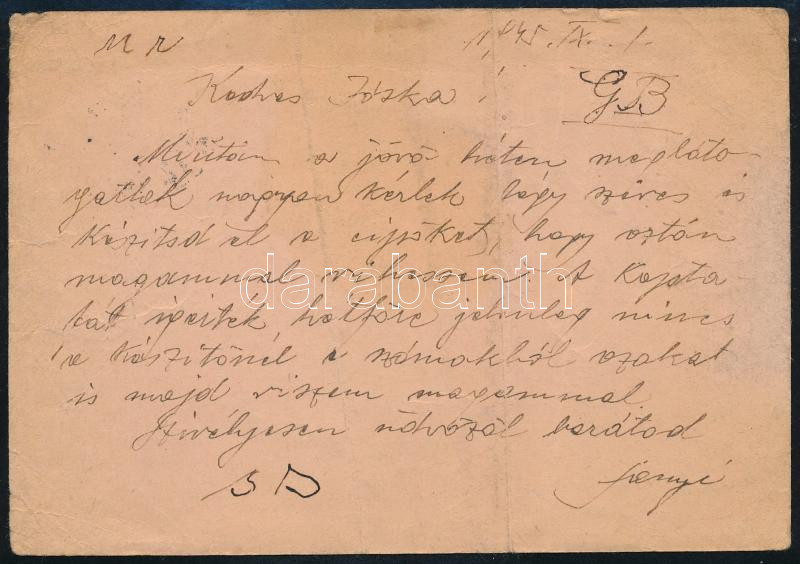 1945. IX. 1.
Kedves Jóska!
GB
Miután a jövő héten megláto-
gatlak nagyon kérlek légy szíves is
készitsd el a cipőket, hogy aztán
magammal vihessem. A
igértek hétfőre jelenleg nincs
a készítőnél a számokból azokat
is majd viszem magammal
Szivélyesen üdvözöl barátod
Jenyi
darabanth